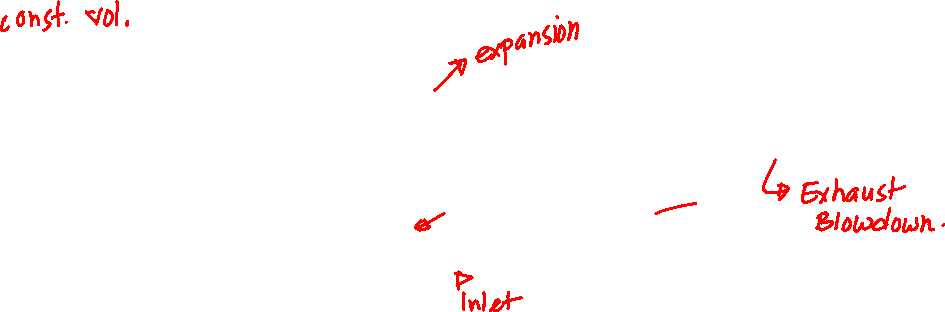 const. vol.
expansion
Exhaust
Blowdown.
Inlet